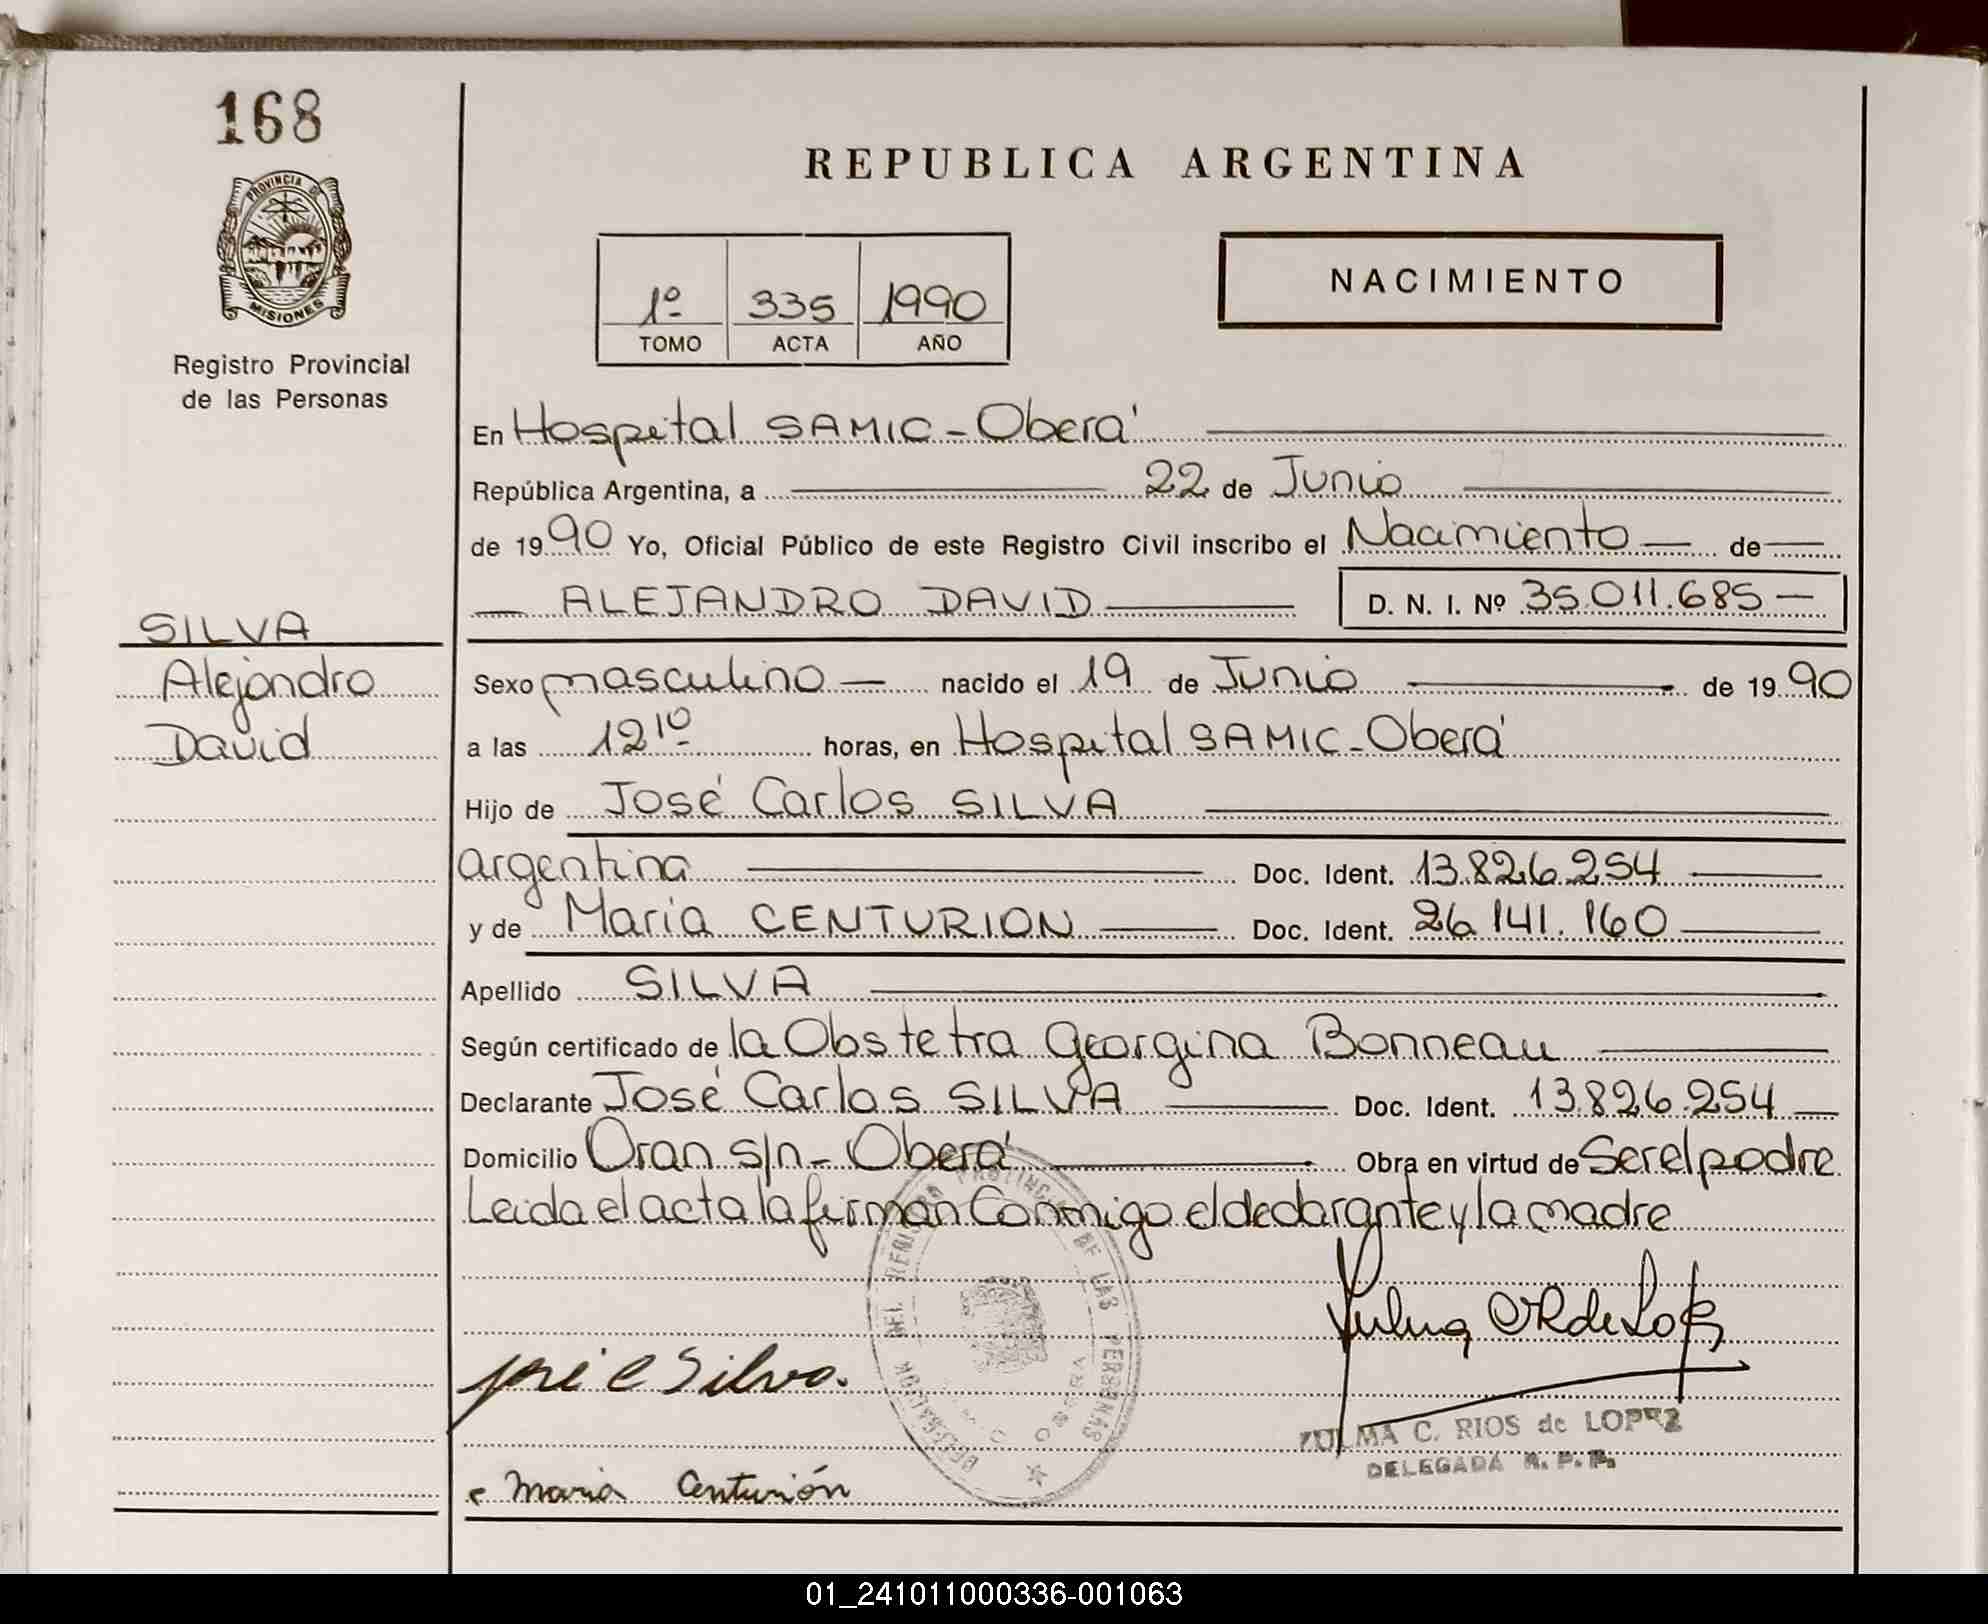 168
PROVINCIA DE
MISIONES
Registro Provincial
de las Personas
SILVA
Alejandro
David
REPUBLICA ARGENTINA
1º 335 1990
TOMO ACTA AÑO
NACIMIENTO
En Hospital SAMIC - Oberá
República Argentina, a 22 de Junio
de 1990 Yo, Oficial Público de este Registro Civil inscribo el Nacimiento de
ALEJANDRO DAVID D. N. I. Nº 35.011.685
Sexo masculino nacido el 19 de Junio de 1990
a las 12 10 horas, en Hospital SAMIC - Oberá
Hijo de José Carlos SILVA
argentina Doc. Ident. 13.826.254
y de María CENTURION Doc. Ident. 26.141.160
Apellido SILVA
Según certificado de la Obstetra Georgina Bonneau
Declarante José Carlos SILVA Doc. Ident. 13.826.254
Domicilio Oran s/n - Oberá Obra en virtud de Ser el padre
Leida el acta la firman Conmigo el declarante y la madre
José C Silva.
DELEGACION DEL REGISTRO PROVINCIAL DE LAS PERSONAS
OBERA
ZULMA C. RIOS de LOPEZ
DELEGADA R. P. P.
Maria Centurión
01_241011000336-001063